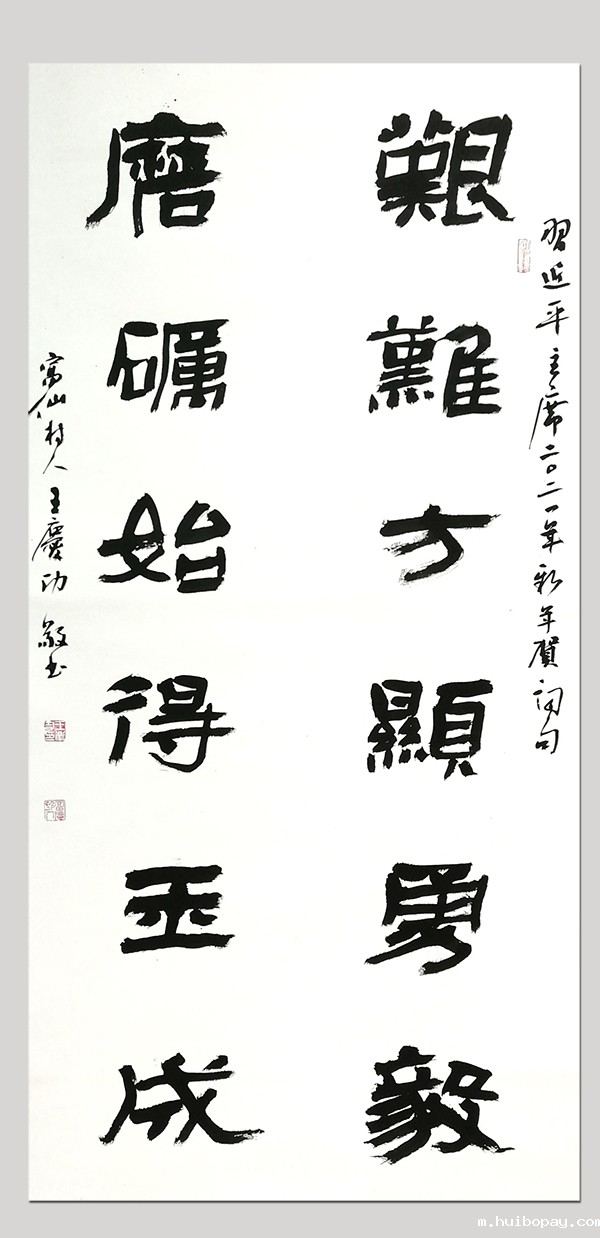 習近平主席二〇二一年新年賀词句
艱難方顯勇毅
磨礪始得玉成
寓仙村人王慶功敬书
m.huibopay.com